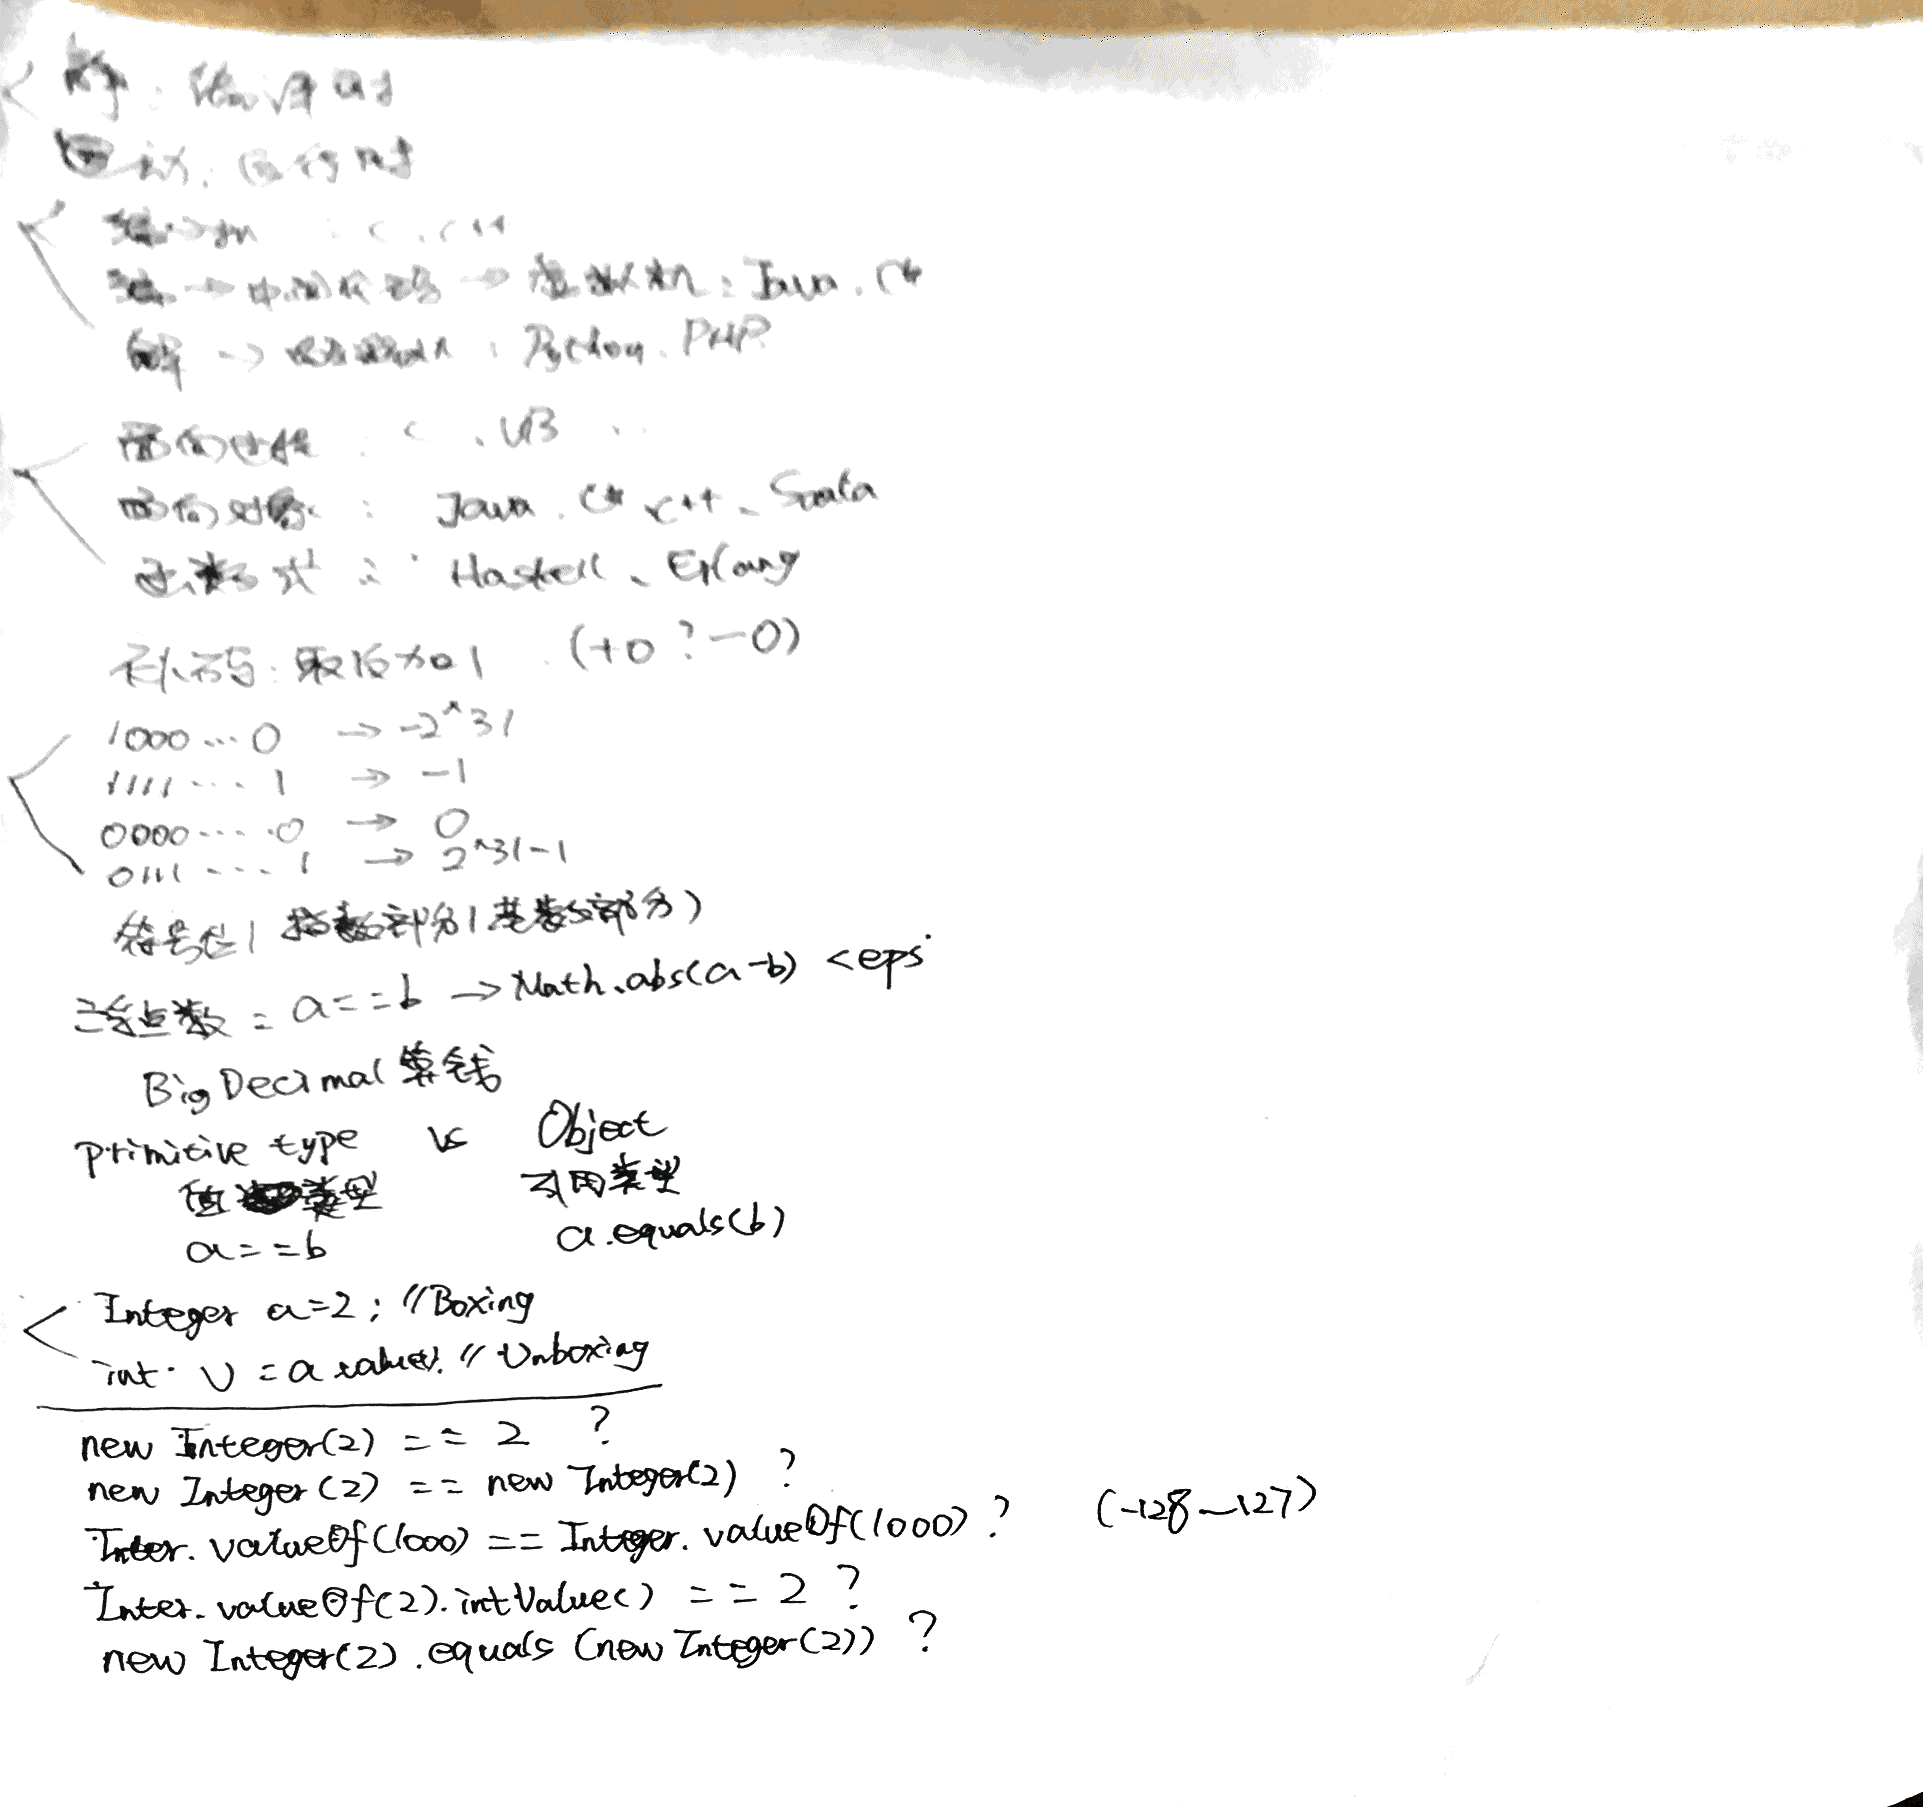 : C, C++
→ 中间代码 → 虚拟机: Java, C#
→ : Python, PHP
面向过程: C, VB
面向对象: Java, C#, C++, Scala
函数式: Haskell, Erlang
补码: 取反加1 (+0?-0)
1000...0 → -2^31
1111....1 → -1
0000.....0 → 0
0111....1 → 2^31-1
符号位|指数部分|基数部分)
浮点数: a==b → Math.abs(a-b) <eps
BigDecimal算钱
primitive type vs Object
值类型 引用类型
a==b a.equals(b)
Integer a=2; //Boxing
int v = a //Unboxing
new Integer(2) == 2 ?
new Integer(2) == new Integer(2) ?
Inter.valueOf(1000) == Integer.valueOf(1000)? (-128—127)
Inter.valueOf(2).intValue() == 2 ?
new Integer(2).equals(new Integer(2)) ?